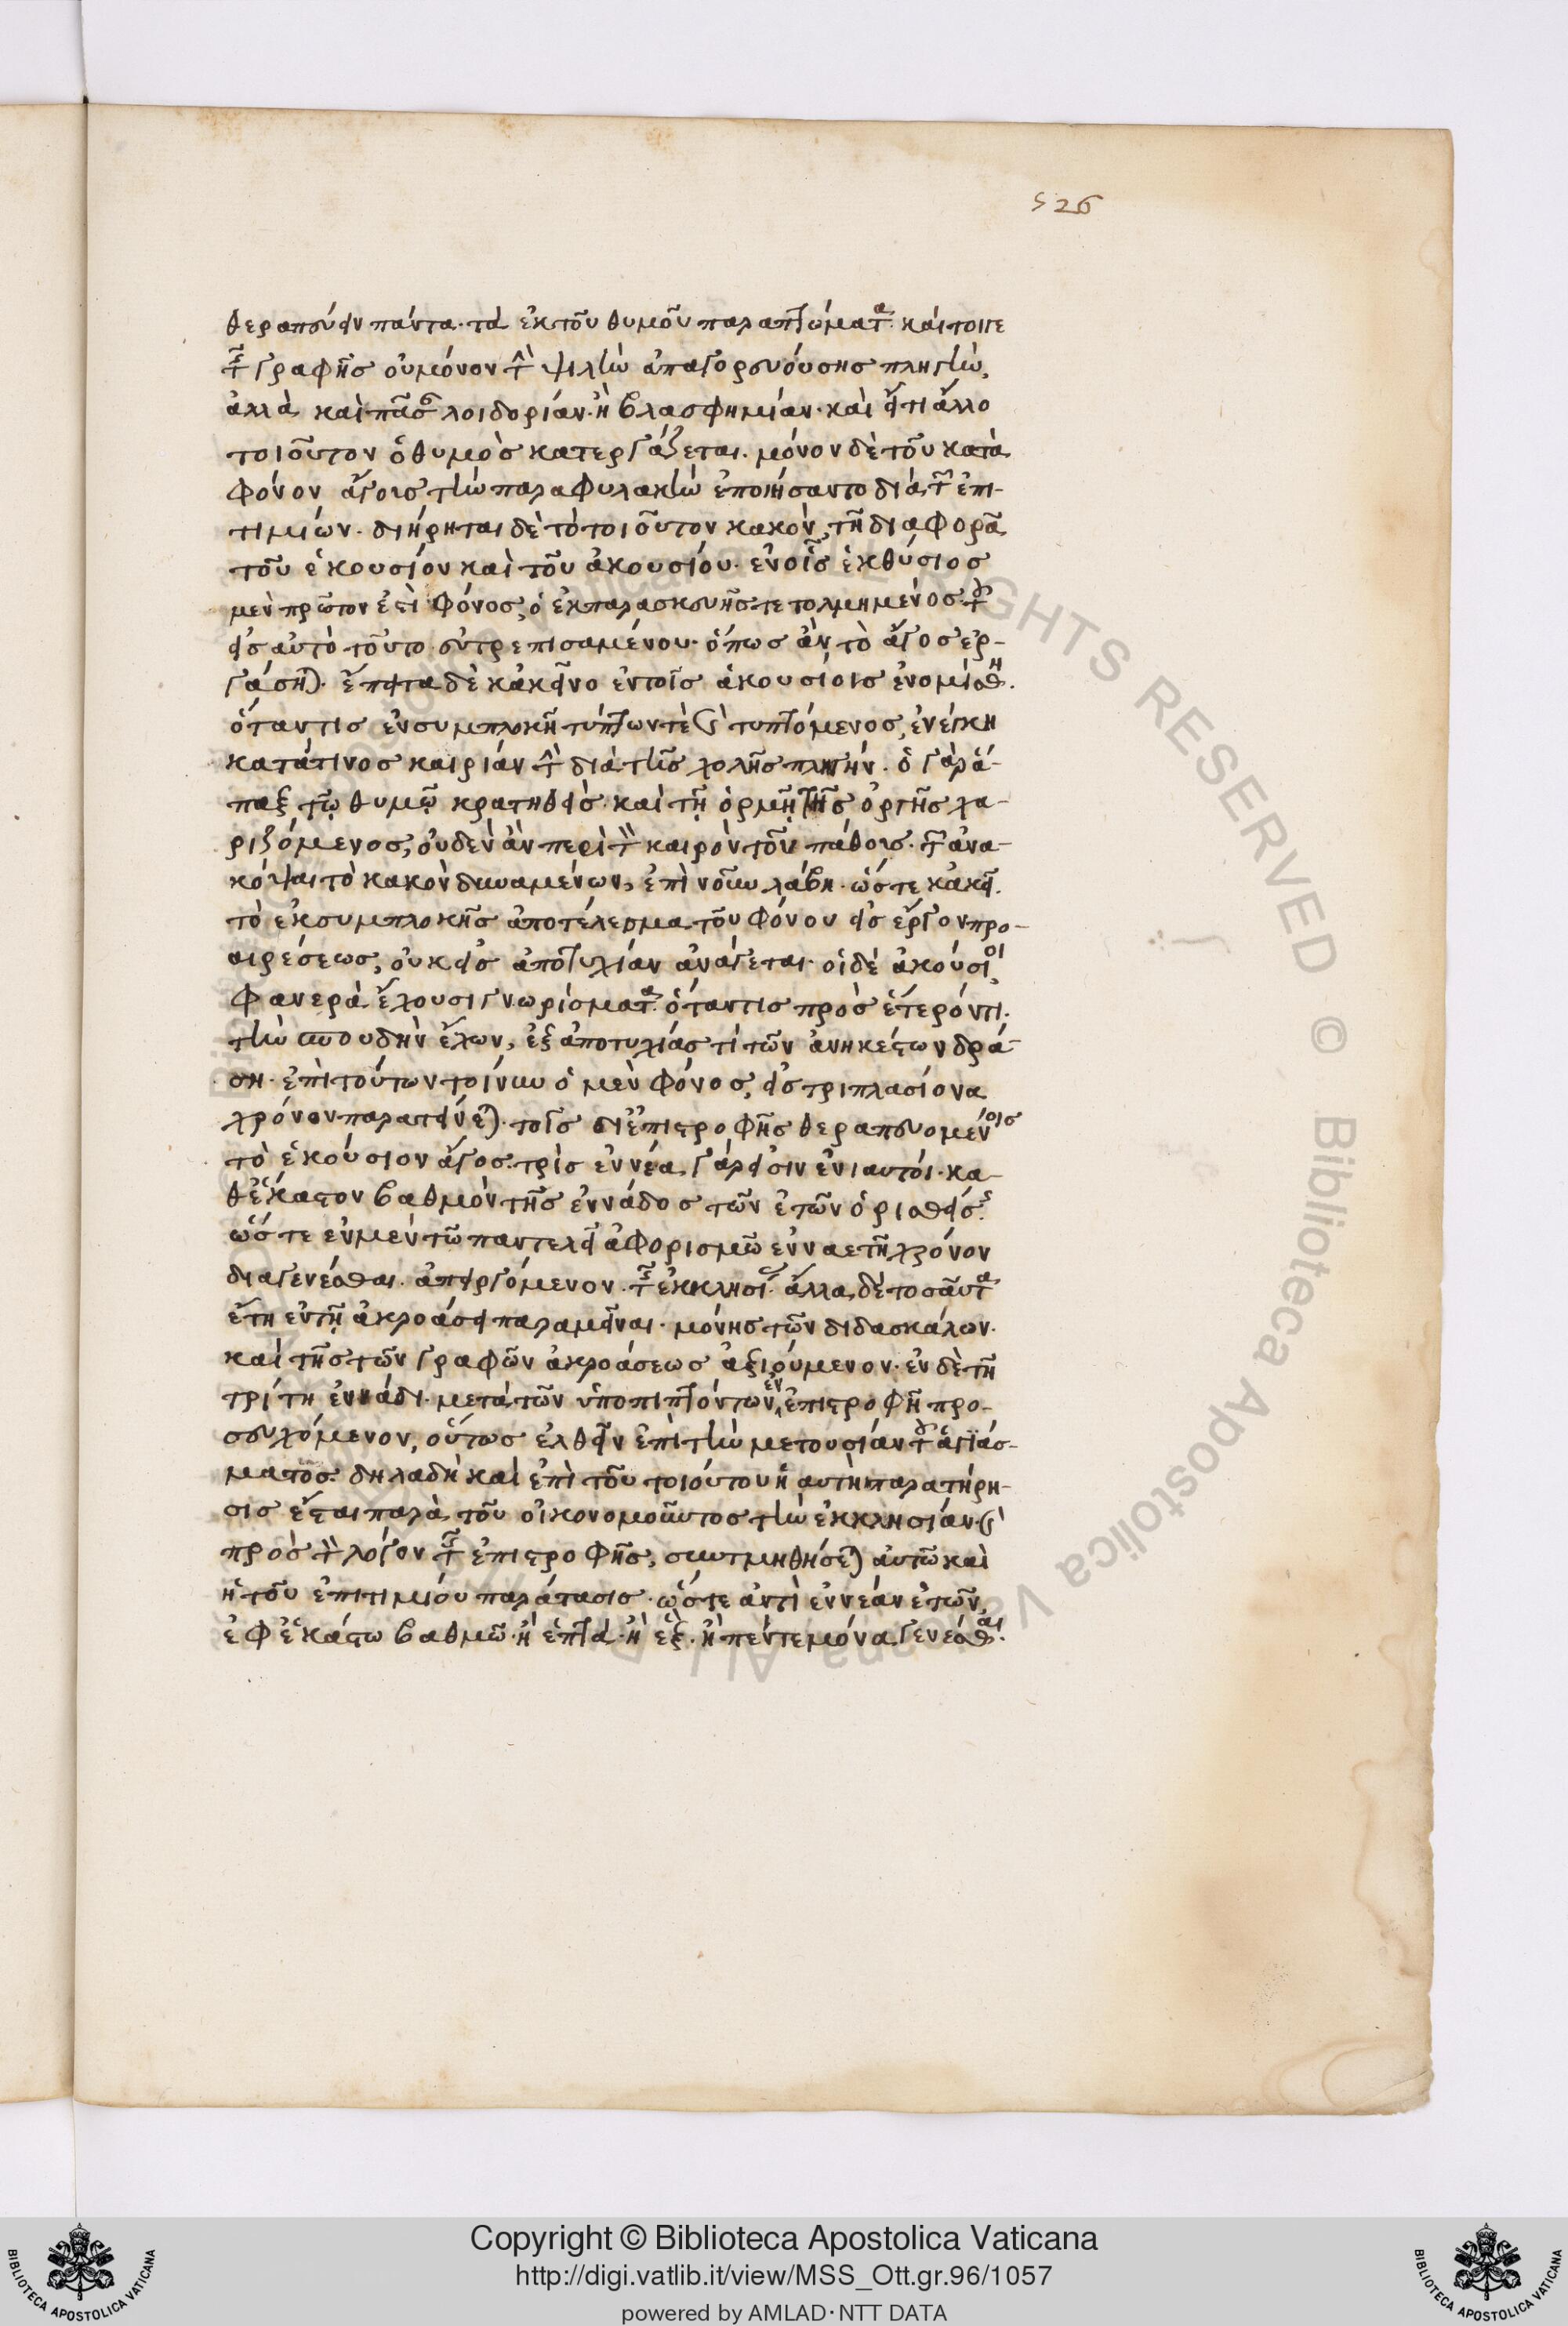 526
θεραπεύειν πάντα· τὰ ἐκ τοῦ θυμοῦ παραπτώματα· καίτοιγε
τῆς γραφῆς οὐ μόνον τὴν ψιλὴν ἀπαγορευούσης πληγὴν,
ἀλλὰ καὶ πᾶσαν λοιδορίαν· ἢ βλασφημίαν· καὶ εἴ τι ἄλλο
τοιοῦτον ὁ θυμὸς κατεργάζεται. μόνον δὲ τοῦ κατὰ
φόνον ἄγους τὴν παραφυλακὴν ἐποιήσαντο διὰ τῶν ἐπι-
τιμιών. διήρηται δὲ τὸ τοιοῦτον κακὸν, τῆ διαφορᾶ
τοῦ ἑκουσίου καὶ τοῦ ἀκουσίου· ἐν οἷς ἑκούσιος
μὲν πρῶτον ἐστὶ φόνος, ὁ ἐκ παρασκευῆς τετολμημένος· τοῦ
εἰς αὐτὸ τοῦτο εὐτρεπισαμένου· ὅπως ἂν τὸ ἄγος ἐρ-
γάσηται· ἔπειτα δὲ κἀκεῖνο ἐν τοῖς ἀκουσίοις ἐνομίσθη.
ὅταν τις ἐν συμπλοκῆ τύπτων τὲ καὶ τυπτόμενος, ἐνέγκη
κατά τινος καιρίαν τὴν διὰ τῆς χολῆς πληγήν. ὁ γὰρ ἅ-
παξ τῷ θυμῷ κρατηθεὶς· καὶ τῇ ὁρμῇ τῆς ὀργῆς χα-
ριζόμενος, οὐδὲν ἂν περὶ τὸν καιρὸν τοῦ πάθους· τῶν ἀνα-
κόψαι τὸ κακὸν δυναμένων, ἐπὶ νοῦν λάβη· ὥστε κἀκεῖ
τὸ ἐκ συμπλοκῆς ἀποτέλεσμα τοῦ φόνου εἰς ἔργον προ-
αιρέσεως, οὐκ εἰς ἀποτυχίαν ἀνάγεται· οἱ δὲ ἀκούσιοι
φανερὰ ἔχουσι γνωρίσματα· ὅταν τις πρὸς ἕτερόν τι
τὴν σπουδὴν ἔχων, ἐξ ἀποτυχίας τί τῶν ἀνηκέστων δρά-
ση· ἐπὶ τούτων τοίνυν ὁ μὲν φόνος, εἰς τριπλασίονα
χρόνον παρατείνεται· τοῖς δι' ἐπιστροφῆς θεραπευομένοις
τὸ ἑκούσιον ἄγος· τρὶς ἐννέα γάρ εἰσιν ἐνιαυτοί· κα-
θ' ἕκαστον βαθμὸν τῆς ἐννάδος τῶν ἐτῶν ὁρισθείσης·
ὥστε ἐν μὲν τῶ παντελεῖ ἀφορισμῶ ἐνναετῆ χρόνον
διαγενέσθαι· ἀπειργόμενον τῆς ἐκκλησίας· ἄλλα δὲ τοσαῦτα
ἔτη ἐν τῇ ἀκροάσει παραμεῖναι· μόνης τῶν διδασκάλων·
καὶ τῆς τῶν γραφῶν ἀκροάσεως ἀξιούμενον· ἐν δὲ τῆ
τρίτη ἐννάδι· μετὰ τῶν ὑποπιπτόντων ἐν ἐπιστροφῆ προ-
σευχόμενον, οὕτως ἐλθεῖν ἐπὶ τὴν μετουσίαν τοῦ ἁγιάσ-
ματος· δηλαδὴ καὶ ἐπὶ τοῦ τοιούτου ἡ αὐτὴ παρατήρη-
σις ἔσται παρὰ τοῦ οἰκονομοῦντος τὴν ἐκκλησίαν· καὶ
πρὸς τὸν λόγον τῆς ἐπιστροφῆς, συντμηθήσεται αὐτῶ καὶ
ἡ τοῦ ἐπιτιμίου παράτασις· ὥστε ἀντὶ ἐννέαν ἐτῶν,
ἐφ' ἑκάστω βαθμῶ· ἢ ἑπτὰ· ἢ ἓξ· ἢ πέντε μόνα γενέσθαι.
Copyright © Biblioteca Apostolica Vaticana
http://digi.vatlib.it/view/MSS_Ott.gr.96/1057
powered by AMLAD·NTT DATA